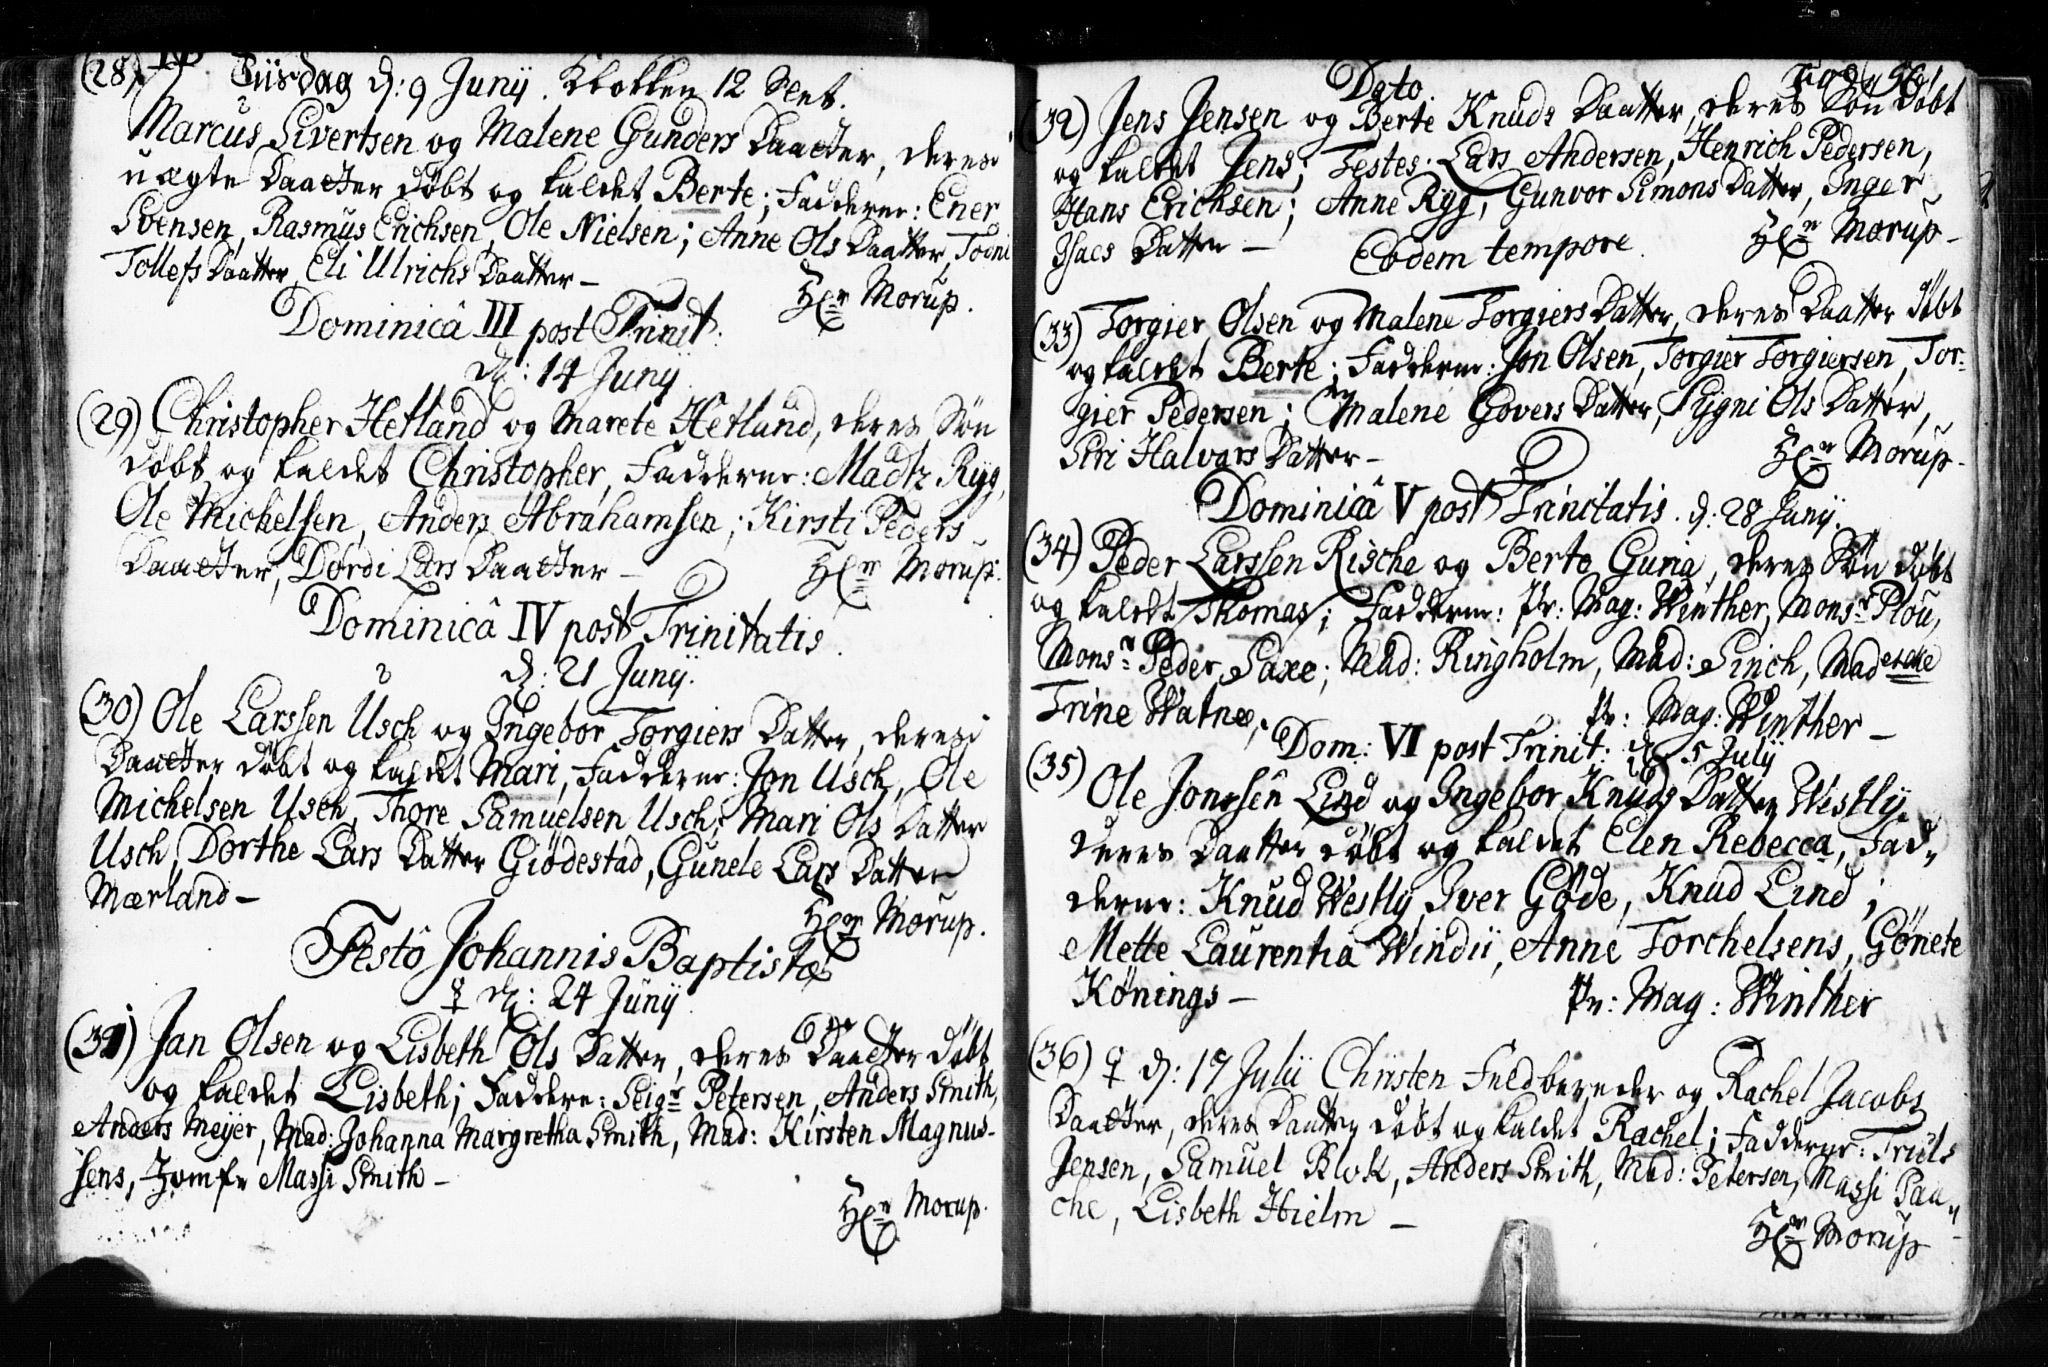 (28) Tiisdag d: 9 Junij. Klokken 12 Slet.
Marcus Sivertsen og Malene Gunders Daatter, deres
uægte Daatter døbt og kaldet Berte; Fadderne: Ener
Svensen, Rasmus Erichsen, Ole Nielsen; Anne Ols Daatter, Torni
Tollefs Daatter, Eli Ulrichs Daatter –
Hr Morup.
Dominicâ III post Trinit:
d: 14 Junij
(29) Christopher Hetland og Marete Hetland, deres Søn
døbt og kaldet Christopher, Fadderne: Madtz Ryg,
Ole Michelsen, Anders Abrahamsen; Kirsti Peders
Daatter, Dordi Lars Daatter –
Hr Morup.
Dominicâ IV post Trinitatis.
d: 21 Junij.
(30) Ole Larssen Usch og Ingebor Torgiers Datter, deres
Daatter døbt og kaldet Mari, Fadderne: Jon Usch, Ole
Michelsen Usch, Thore Samuelsen Usch; Mari Ols Datter
Usch, Dorthe Lars Datter Giødestad, Gunele Lars Datter
Mærland –
Hr Morup.
Festô Johannis Baptistæ
☿ d: 24 Junij
(31) Jan Olsen og Lisbeth Ols Datter, deres Daatter døbt
og kaldet Lisbeth; Faddere: Seigr Petersen, Anders Smith,
Anders Meyer, Mad: Johanna Margretha Smith, Mad: Kirsten Magnus-
sens, Jomfr Massi Smith –
Hr Morup.
Dato.
(32) Jens Jensen og Berte Knuds Daatter, deres Søn døbt
og kaldet Jens; Testes: Lars Andersen, Henrich Pedersen,
Hans Erichsen; Anne Ryg, Gunvor Simons Datter, Inger
Isacs Datter –
Hr Morup –
Eodem tempore.
(33) Torgier Olsen og Malene Torgiers Datter, deres Daatter døbt
og kaldet Berte; Fadderne: Jon Olsen, Torgier Torgiersen, Tor-
gier Pedersen; Malene Govers Datter, Sygni Ols Datter,
Siri Halvors Datter –
Hr Morup –
Dominicâ V post Trinitatis. d: 28 Junij.
(34) Peder Larssen Rische og Berte Guria, deres Søn døbt
og kaldet Thomas; Fadderne: Pr: Mag: Winther, Monsr Plou,
Monsr Peder Saxe; Mad: Ringholm, Mad: Sinch, Mad
Trine Watne.
Pr: Mag: Winther –
Dom: VI post Trinit: d 5 July
(35) Ole Jonssen Lind og Ingebor Knuds Datter Westly,
deres Daatter døbt og kaldet Elen Rebecca, Fad„
derne: Knud Westly, Iver Gøde, Knud Lind;
Mette Laurentia Windii, Anne Torchelsens, Gønete
Kønings –
Pr: Mag: Winther
(36) ♀ d: 17 Julii Christen Feldbereder og Rachel Jacobs
Daatter, deres Daatter døbt og kaldet Rachel; Fadderne: Truls
Jensen, Samuel Blok, Anders Smith, Mad: Petersen, Massi Paa„
che, Lisbeth Hielm –
Hr Morup